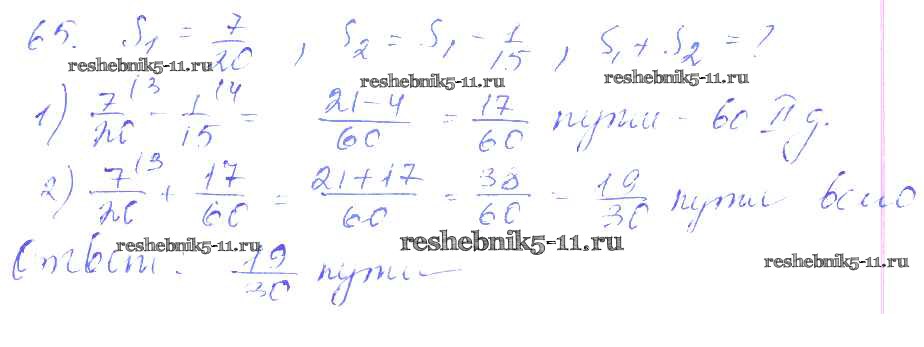 65. S₁ = 7/20, S₂ = S₁ - 1/15, S₁ + S₂ = ?
reshebnik5-11.ru reshebnik5-11.ru reshebnik5-11.ru
1) 7/20 (3 - 1/15 (4 = 21-4/60 = 17/60 пути - во II д.
2) 7/20 (3 + 17/60 = 21+17/60 = 38/60 = 19/30 пути всего
reshebnik5-11.ru reshebnik5-11.ru reshebnik5-11.ru
Ответ: 19/30 пути